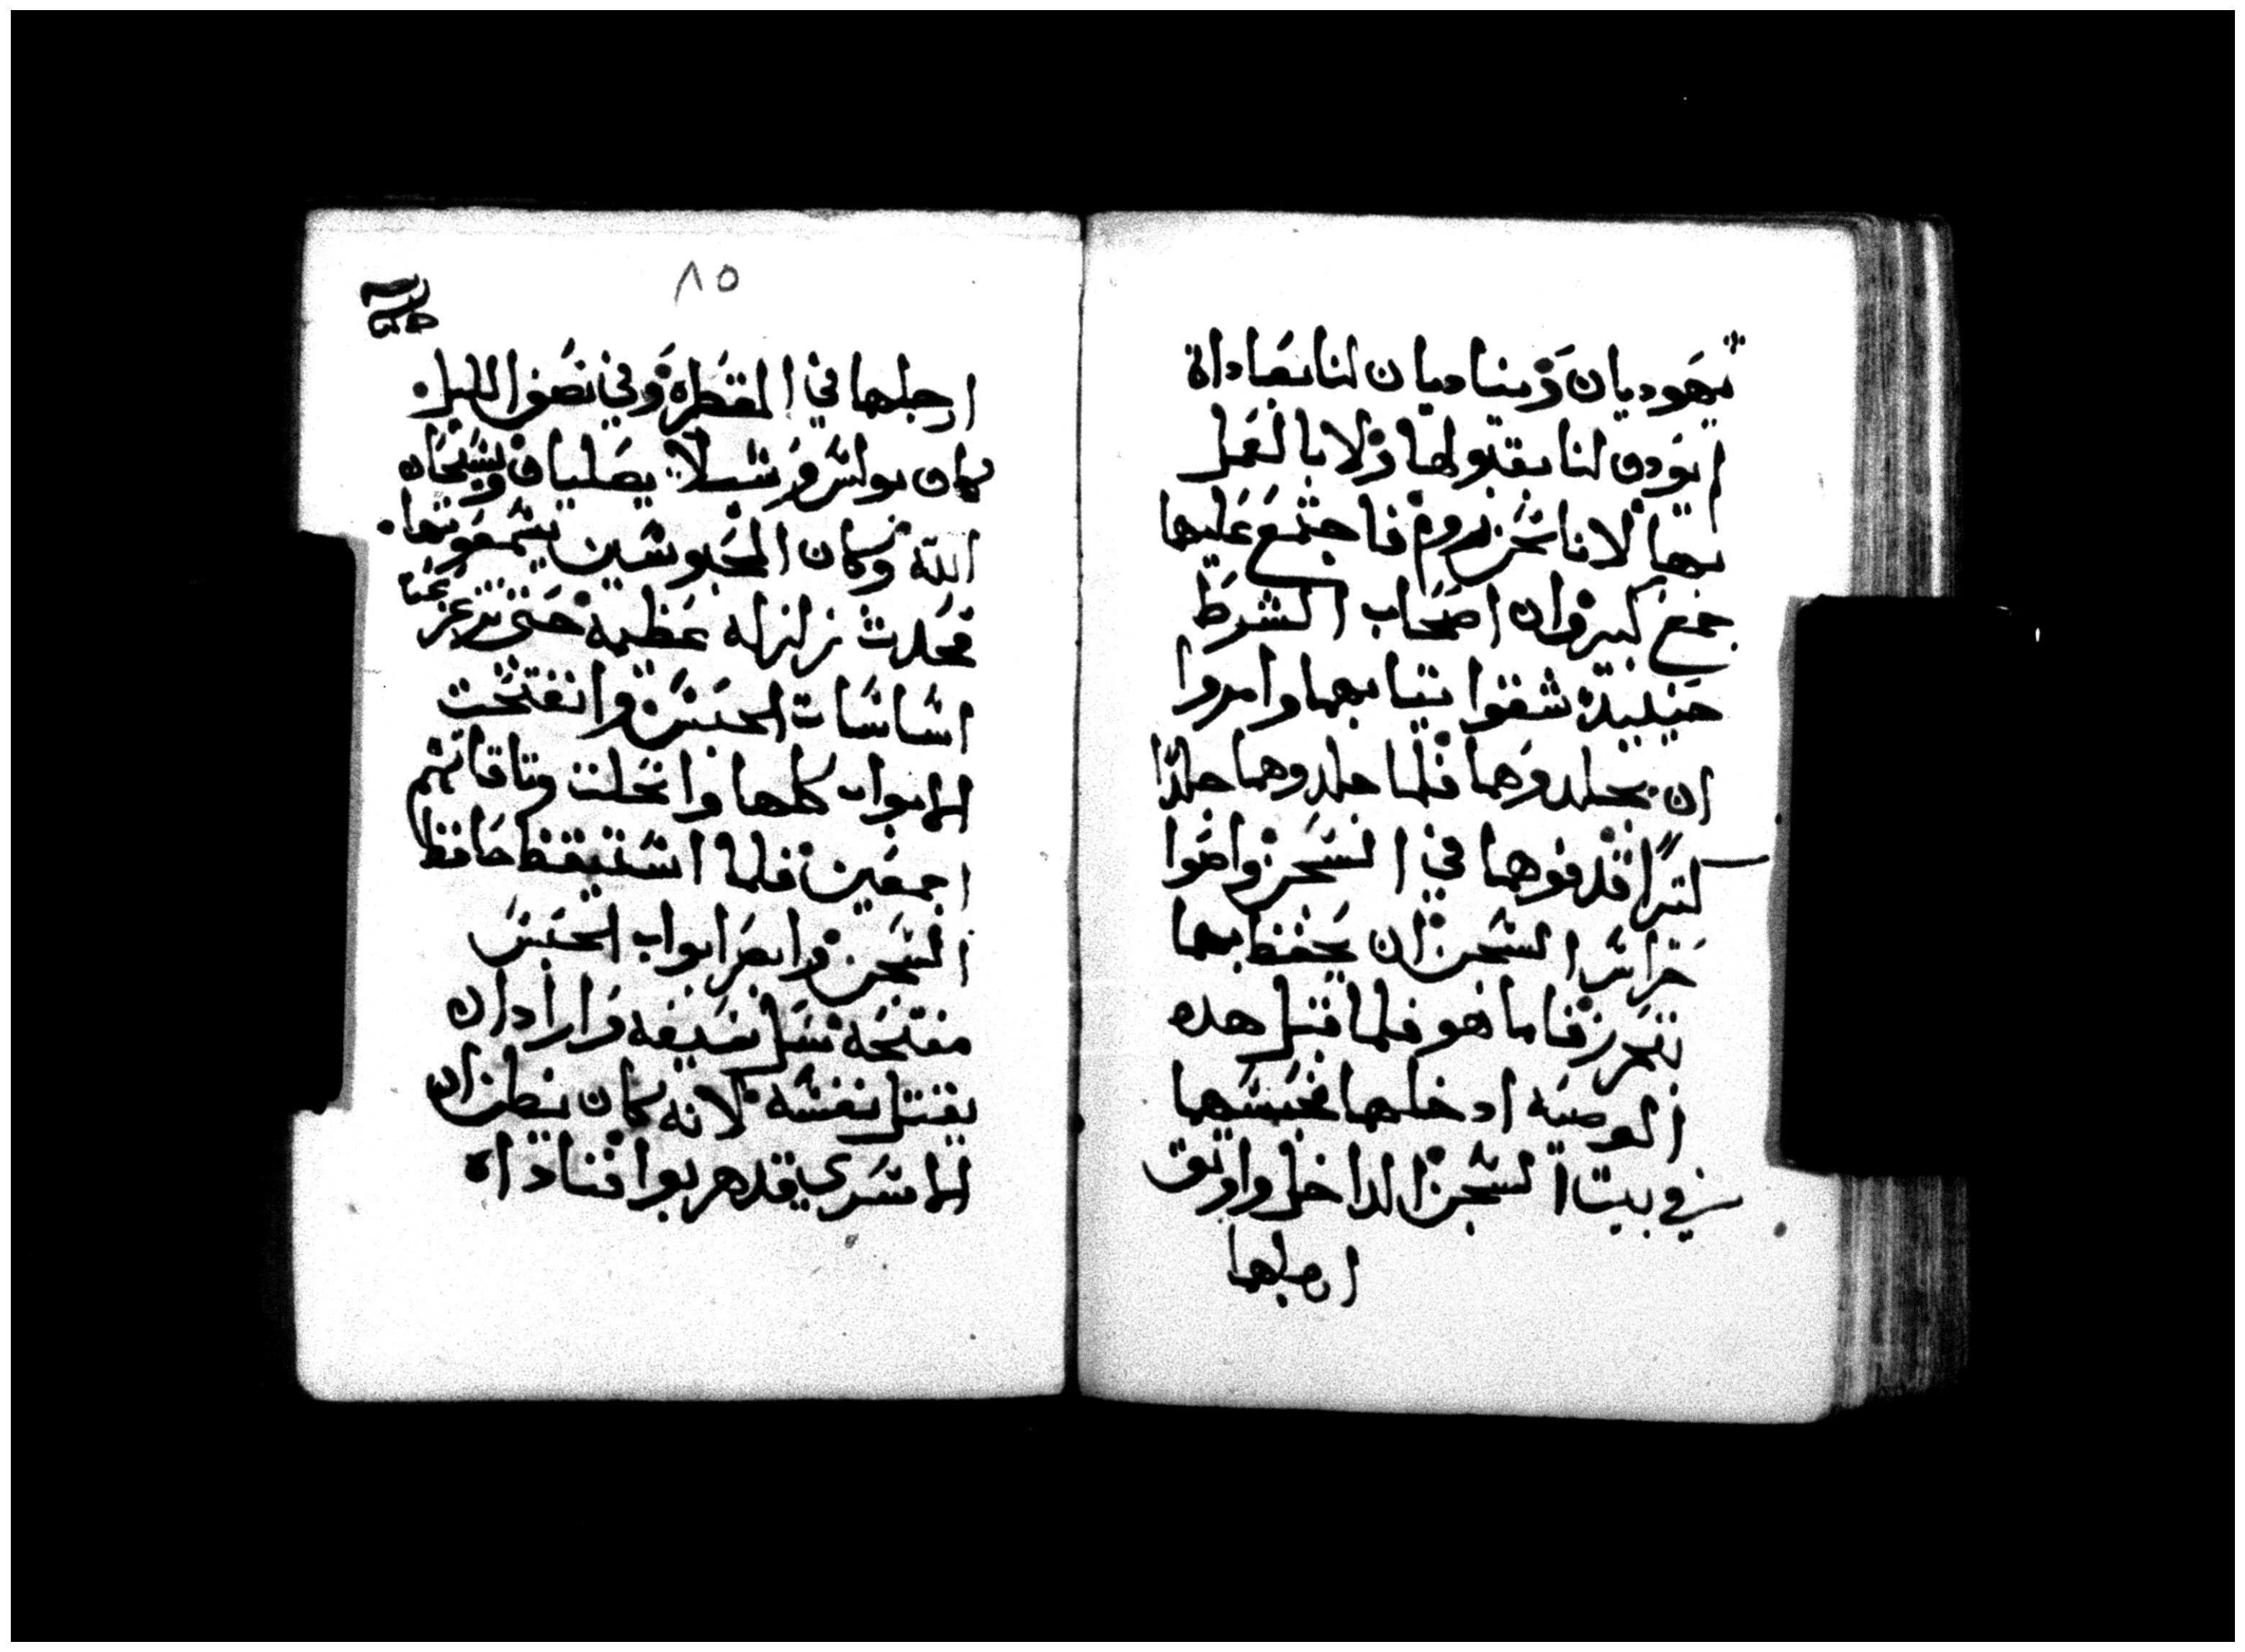 يهوديان ويناديان لنا بعاداة
ايودن لنا بقبولها ولا بالعمل
بها لانا نحن روم فاجتمع عليها
جمع كبير وان اصحاب الشرط
حينيذ شققوا ثيابهما وامروا
ان يجلدوهما فلما جلدوهما جلدًا
كتيرًا قدفوهما في السجن واوصوا
حراس السجن ان يحفظ بهما
بتحرز فاما هو فلما قبل هده
الوصيه ادخلهما فحبسهما
في بيت السجن الداخل واوتق
ارجلهما
٨٥
ارجلهما في المقطرة وفي نصف الليل
كان بولس وشيلا يصليان ويسبحان
الله وكان المحبوسين يسمعونهما
فحدث زلزله عظيمه حتى تزعزعت
اساسات الحبس وانفتحت
الابواب كلها وانحلت وتاقاتهم
اجمعين فلما استيقظ حافظ
السجن وابصر ابواب الحبس
مفتحه سل سيفه واراد ان
يقتل نفسه لانه كان يظن ان
الاسرى قد هربوا فناداه